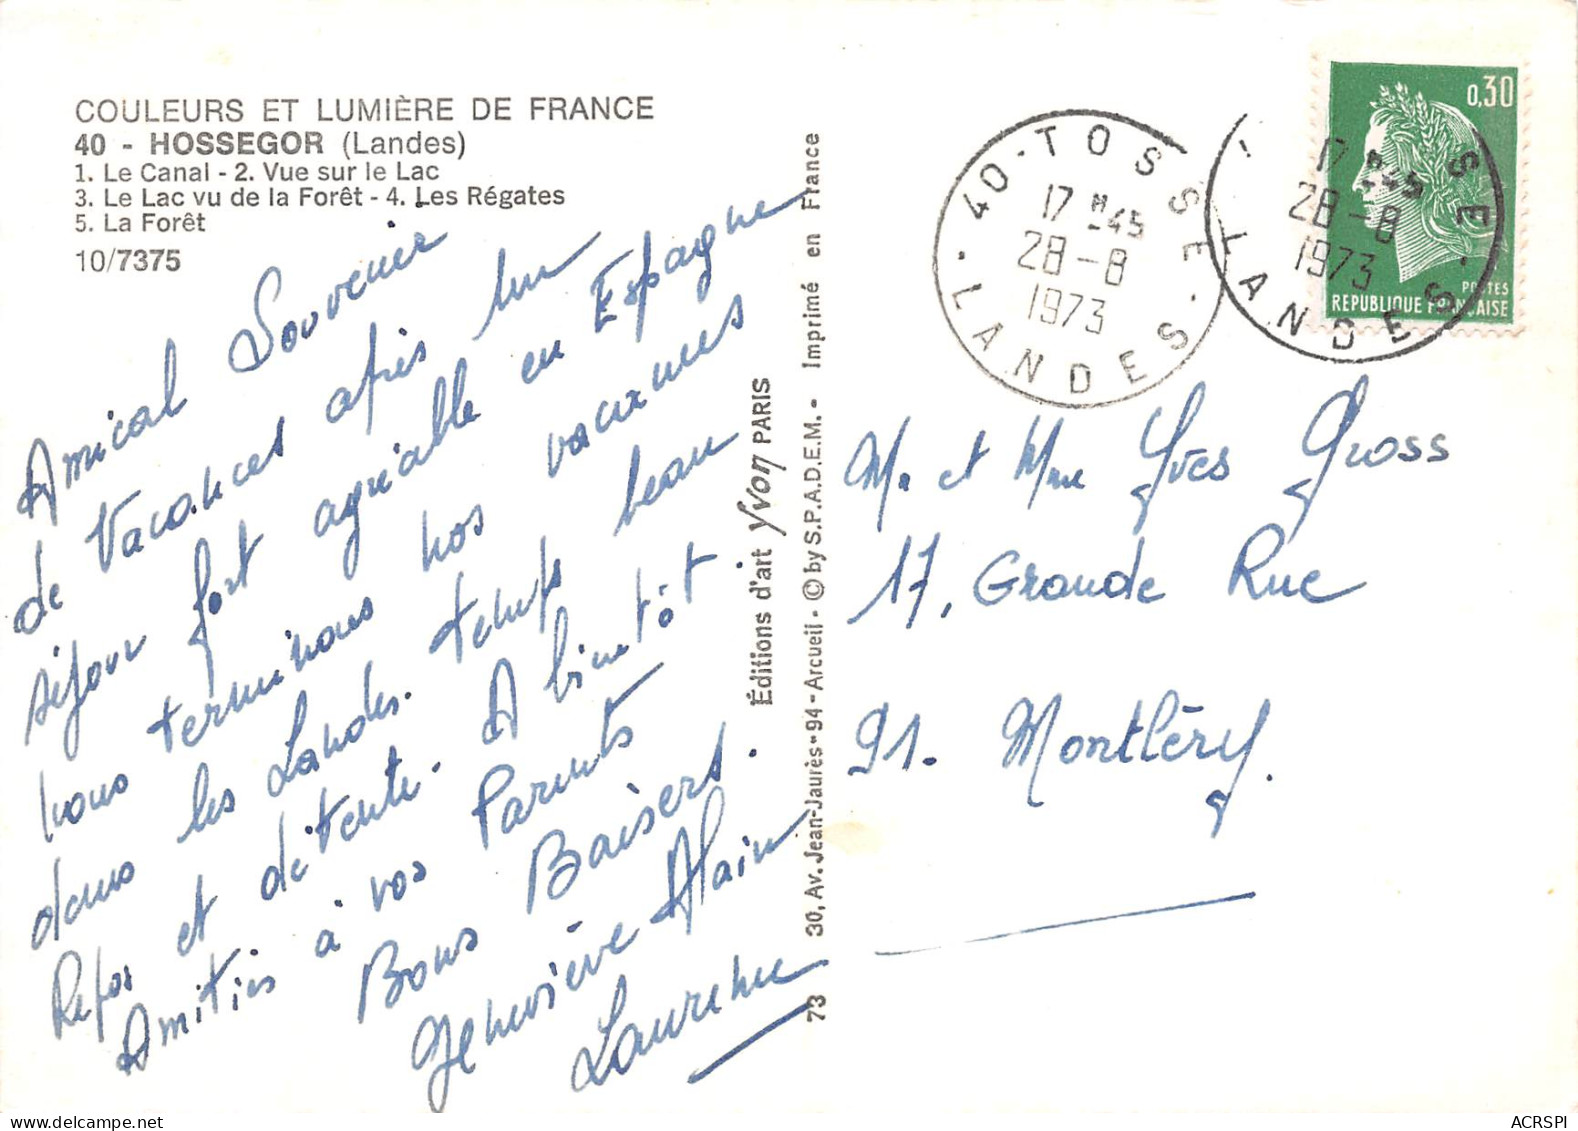 COULEURS ET LUMIÈRE DE FRANCE
40 - HOSSEGOR (Landes)
1. Le Canal - 2. Vue sur le Lac
3. Le Lac vu de la Forêt - 4. Les Régates
5. La Forêt
10/7375
Amical Souvenir
de Vacances après un
séjour fort agréable en Espagne
nous terminons nos vacances
dans les Landes. temps beau
Repos et détente. A bientôt.
Amitiés à vos Parents
Bons Baisers.
Geneviève Alain
Laurence
Éditions d'art Yvon PARIS
73 30, Av. Jean-Jaurès - 94 - Arcueil - © by S.P.A.D.E.M. - Imprimé en France
40 - TOSSE - LANDES
17 H 45
28-8
1973
SSE - LANDES
17 H 45
28-8
1973
0,30
POSTES
REPUBLIQUE FRANÇAISE
M. et Mme Yves Gross
17, Grande Rue
91. Montlhéry.
ACRSPI